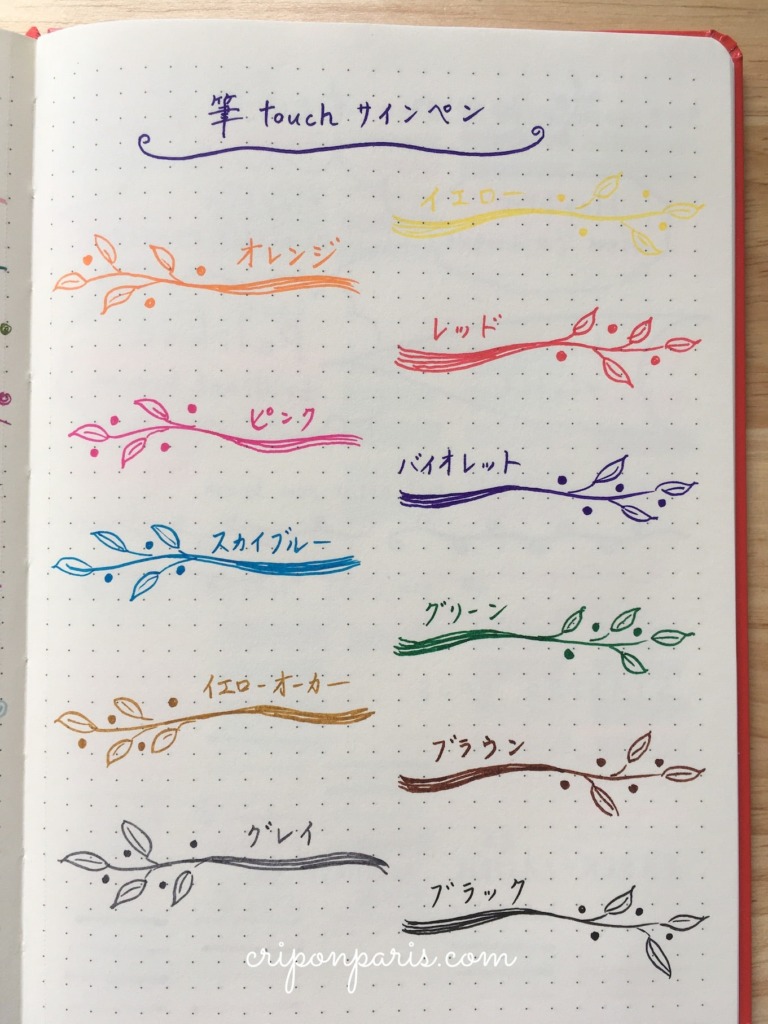 筆touchサインペン
イエロー
オレンジ
レッド
ピンク
バイオレット
スカイブルー
グリーン
イエローオーカー
ブラウン
グレイ
ブラック
criponparis.com